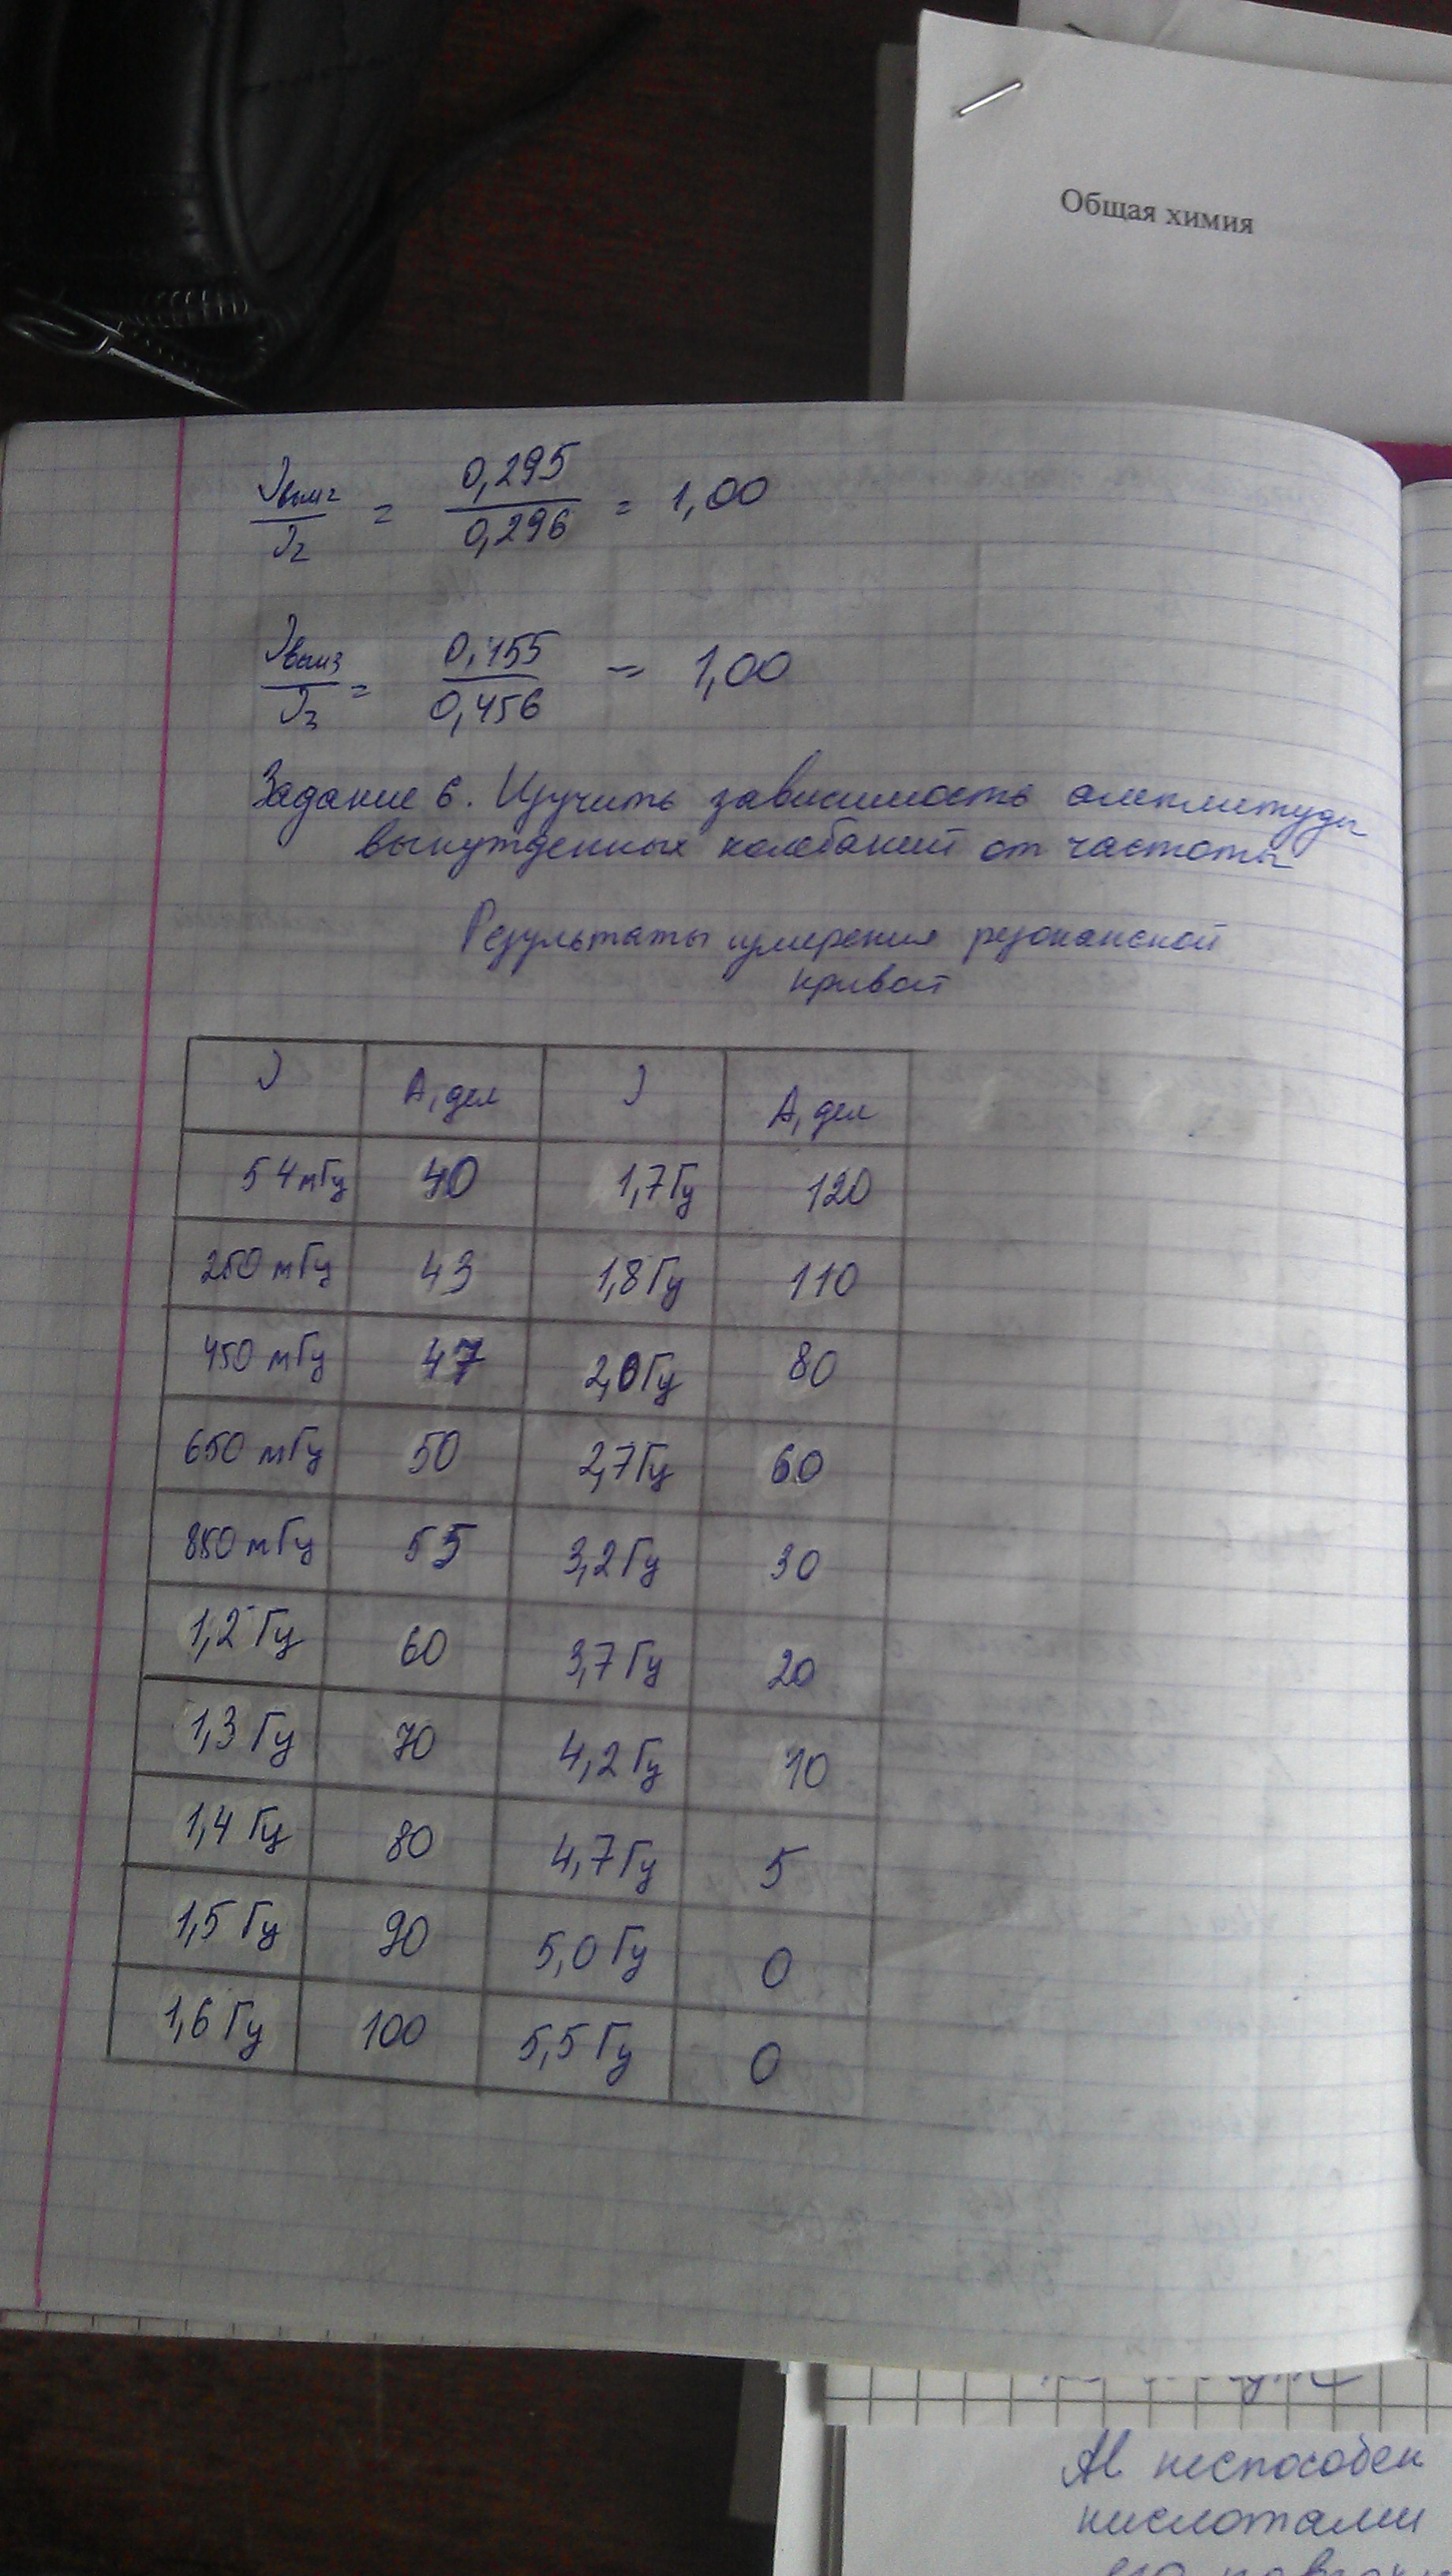 Общая химия
νвын2/ν2 = 0,295/0,296 = 1,00
νвын3/ν3 = 0,455/0,456 = 1,00
Задание 6. Изучить зависимость амплитуды
вынужденных колебаний от частоты
Результаты измерения резонансной
кривой
ν А, дел ν А, дел
54 мГц 40 1,7 Гц 120
250 мГц 43 1,8 Гц 110
450 мГц 47 2,0 Гц 80
650 мГц 50 2,7 Гц 60
850 мГц 55 3,2 Гц 30
1,2 Гц 60 3,7 Гц 20
1,3 Гц 70 4,2 Гц 10
1,4 Гц 80 4,7 Гц 5
1,5 Гц 90 5,0 Гц 0
1,6 Гц 100 5,5 Гц 0
Al неспособен
кислотами